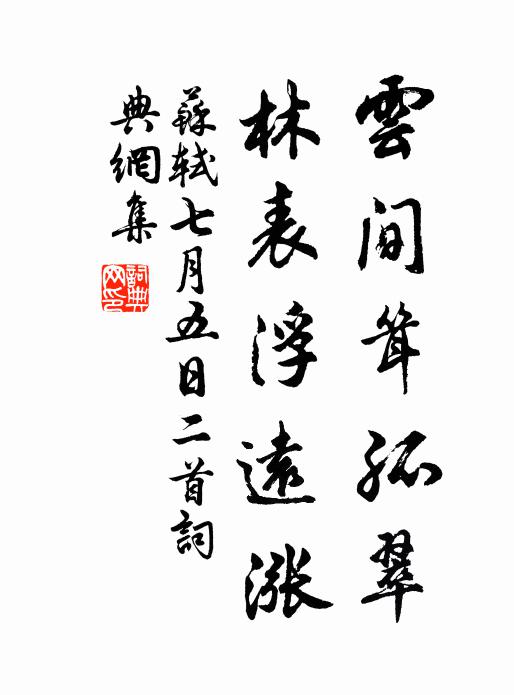 雲間聳孤翠
林表浮遠漲
蘇軾七月五日二首詞
典網集
詞典
网印